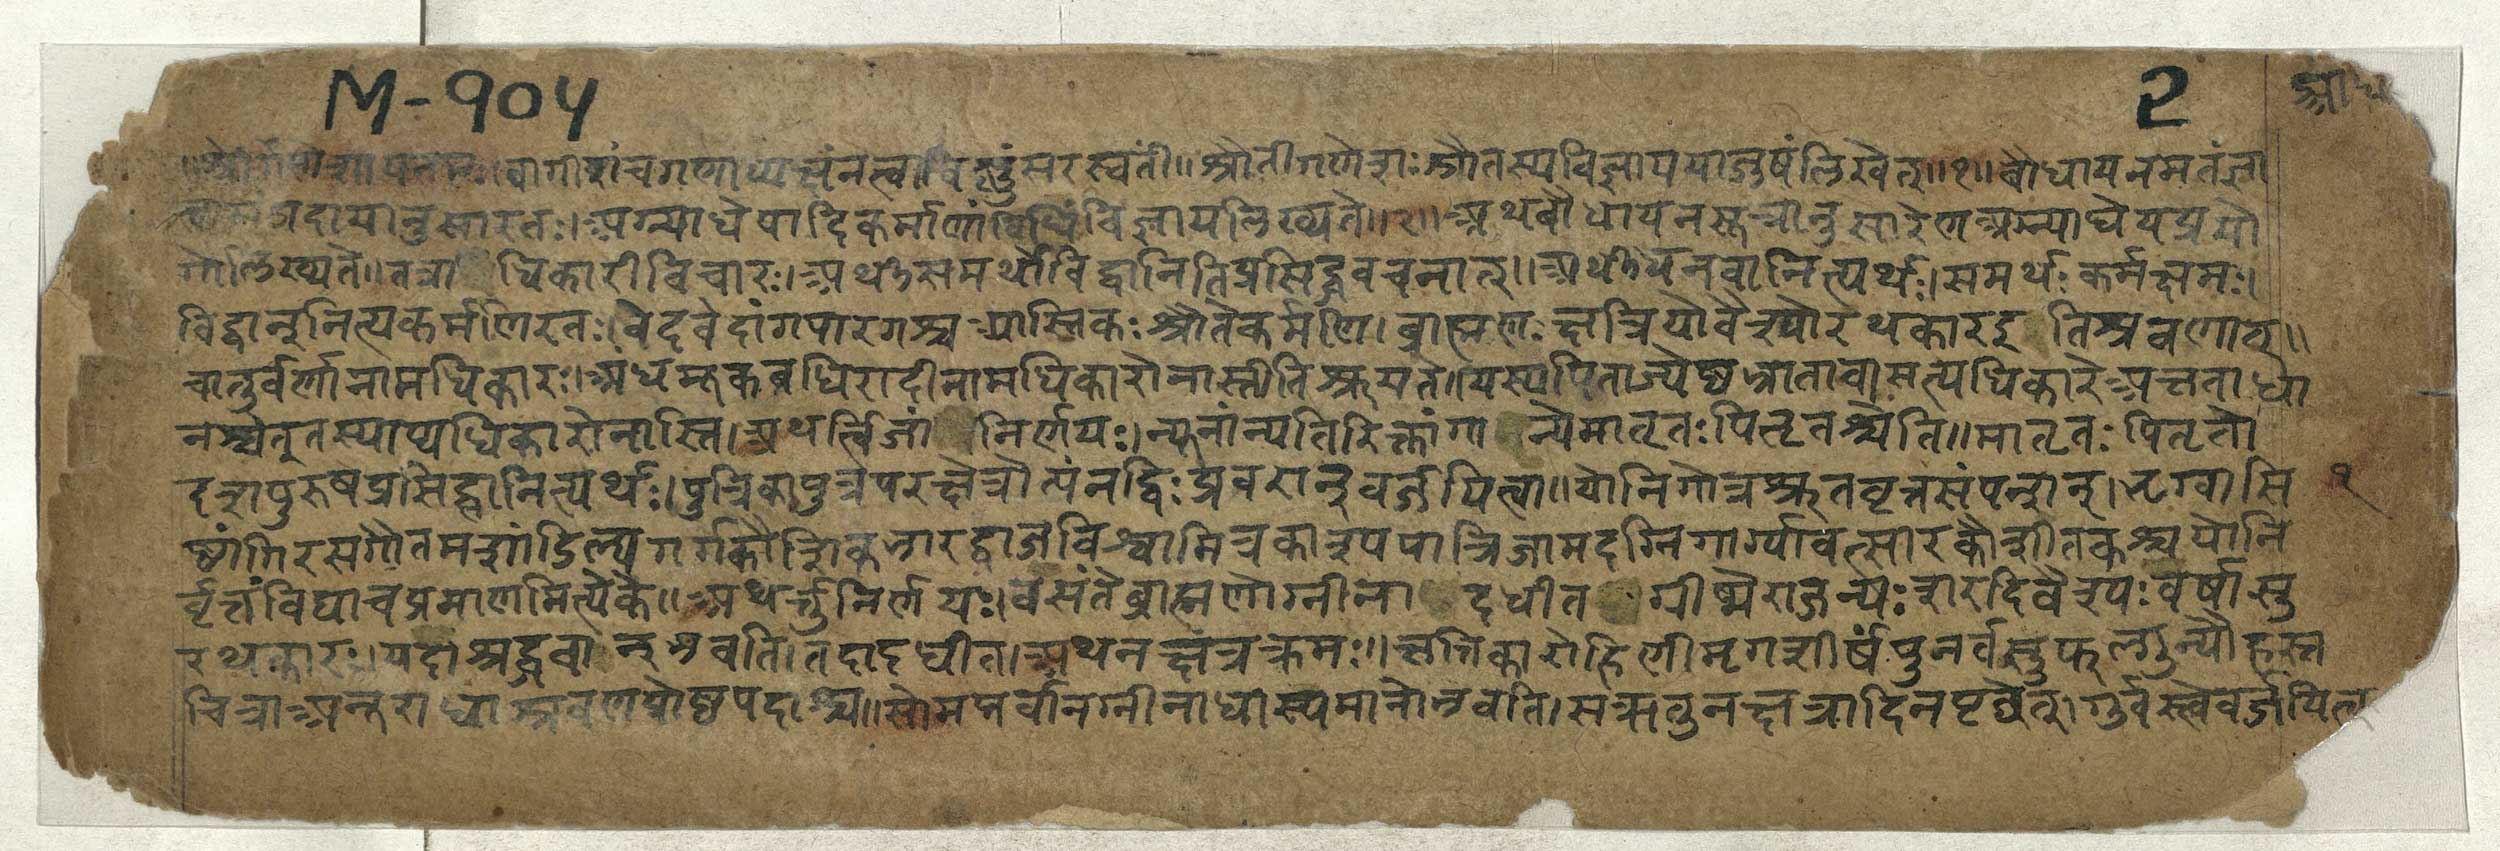 M-१०५
2
॥श्रीगणेशाय नमः॥वागीशं च गणाध्यक्षं नत्वा विष्णुं सरस्वतीं॥श्रौती गणेशः श्रौतस्य विज्ञाय याजुषं लिखेत्॥१॥बौधायनमतं ज्ञा
दायानुसारतः।अग्न्याधेयादिकर्माणां विधिं विज्ञाय लिख्यते॥२॥अथ बौधायनसूत्रानुसारेण अग्न्याधेयप्रयो
गो लिख्यते॥तत्रा धिकारी विचारः।अर्थी समर्थो विद्वानिति प्रसिद्धवचनात्॥अर्थी धनवानित्यर्थः।समर्थः कर्मक्षमः।
विद्वान् नित्यकर्मणि रतः।वेदवेदांगपारगश्च आस्तिकः श्रौतकर्मणि।ब्राह्मणः क्षत्रियो वैश्यो रथकार इ ति श्रवणात्॥
चातुर्वर्णानामधिकारः।अंधमूकबधिरादीनामधिकारो नास्तीति श्रूयते।यस्य पिता ज्येष्ठभ्राता वा सत्यधिकारे अकृताधा
नश्चेत् तस्याप्यधिकारो नास्ति।अथर्त्विजां निर्णयः।न्यूनांन्यतिरिक्तांगा न्ये मातृतः पितृतश्चेति॥मातृतः पितृतो
दशपुरुषप्रसिद्धानित्यर्थः।पुत्रिकापुत्रपरक्षेत्रोत्पंनद्विःप्रवरान् वर्जयित्वा॥योनिगोत्रश्रुतवृत्तसंपन्नान्।ऋग्वासि
ष्ठांगिरसगौतमशांडिल्यगर्गकौशिकभारद्वाजविश्वामित्रकाश्यपात्रिजामदग्निगार्ग्यावत्सारकौशीतकश्च योनि
र्वृत्तं विद्या च प्रमाणमित्येके॥अथर्त्तुनिर्णयः।वसंते ब्राह्मणोग्नीना दधीत ग्रीष्मे राजन्यः शरदि वैश्यः वर्षासु
रथकारः।यदा श्रद्धवा न् भवति।तदादधीत।अथ नक्षत्रक्रमः॥कृत्तिकारोहिणीमृगशीर्षपुनर्वसुफल्गुन्यौहस्त
चित्राअनुराधाश्रवणप्रोष्ठपदाश्च॥सोमपूर्वानग्नीनाधास्यमानो भवति।सऋतुनक्षत्रादि न पृच्छेत्।गुर्वस्त्वे वर्जयित्